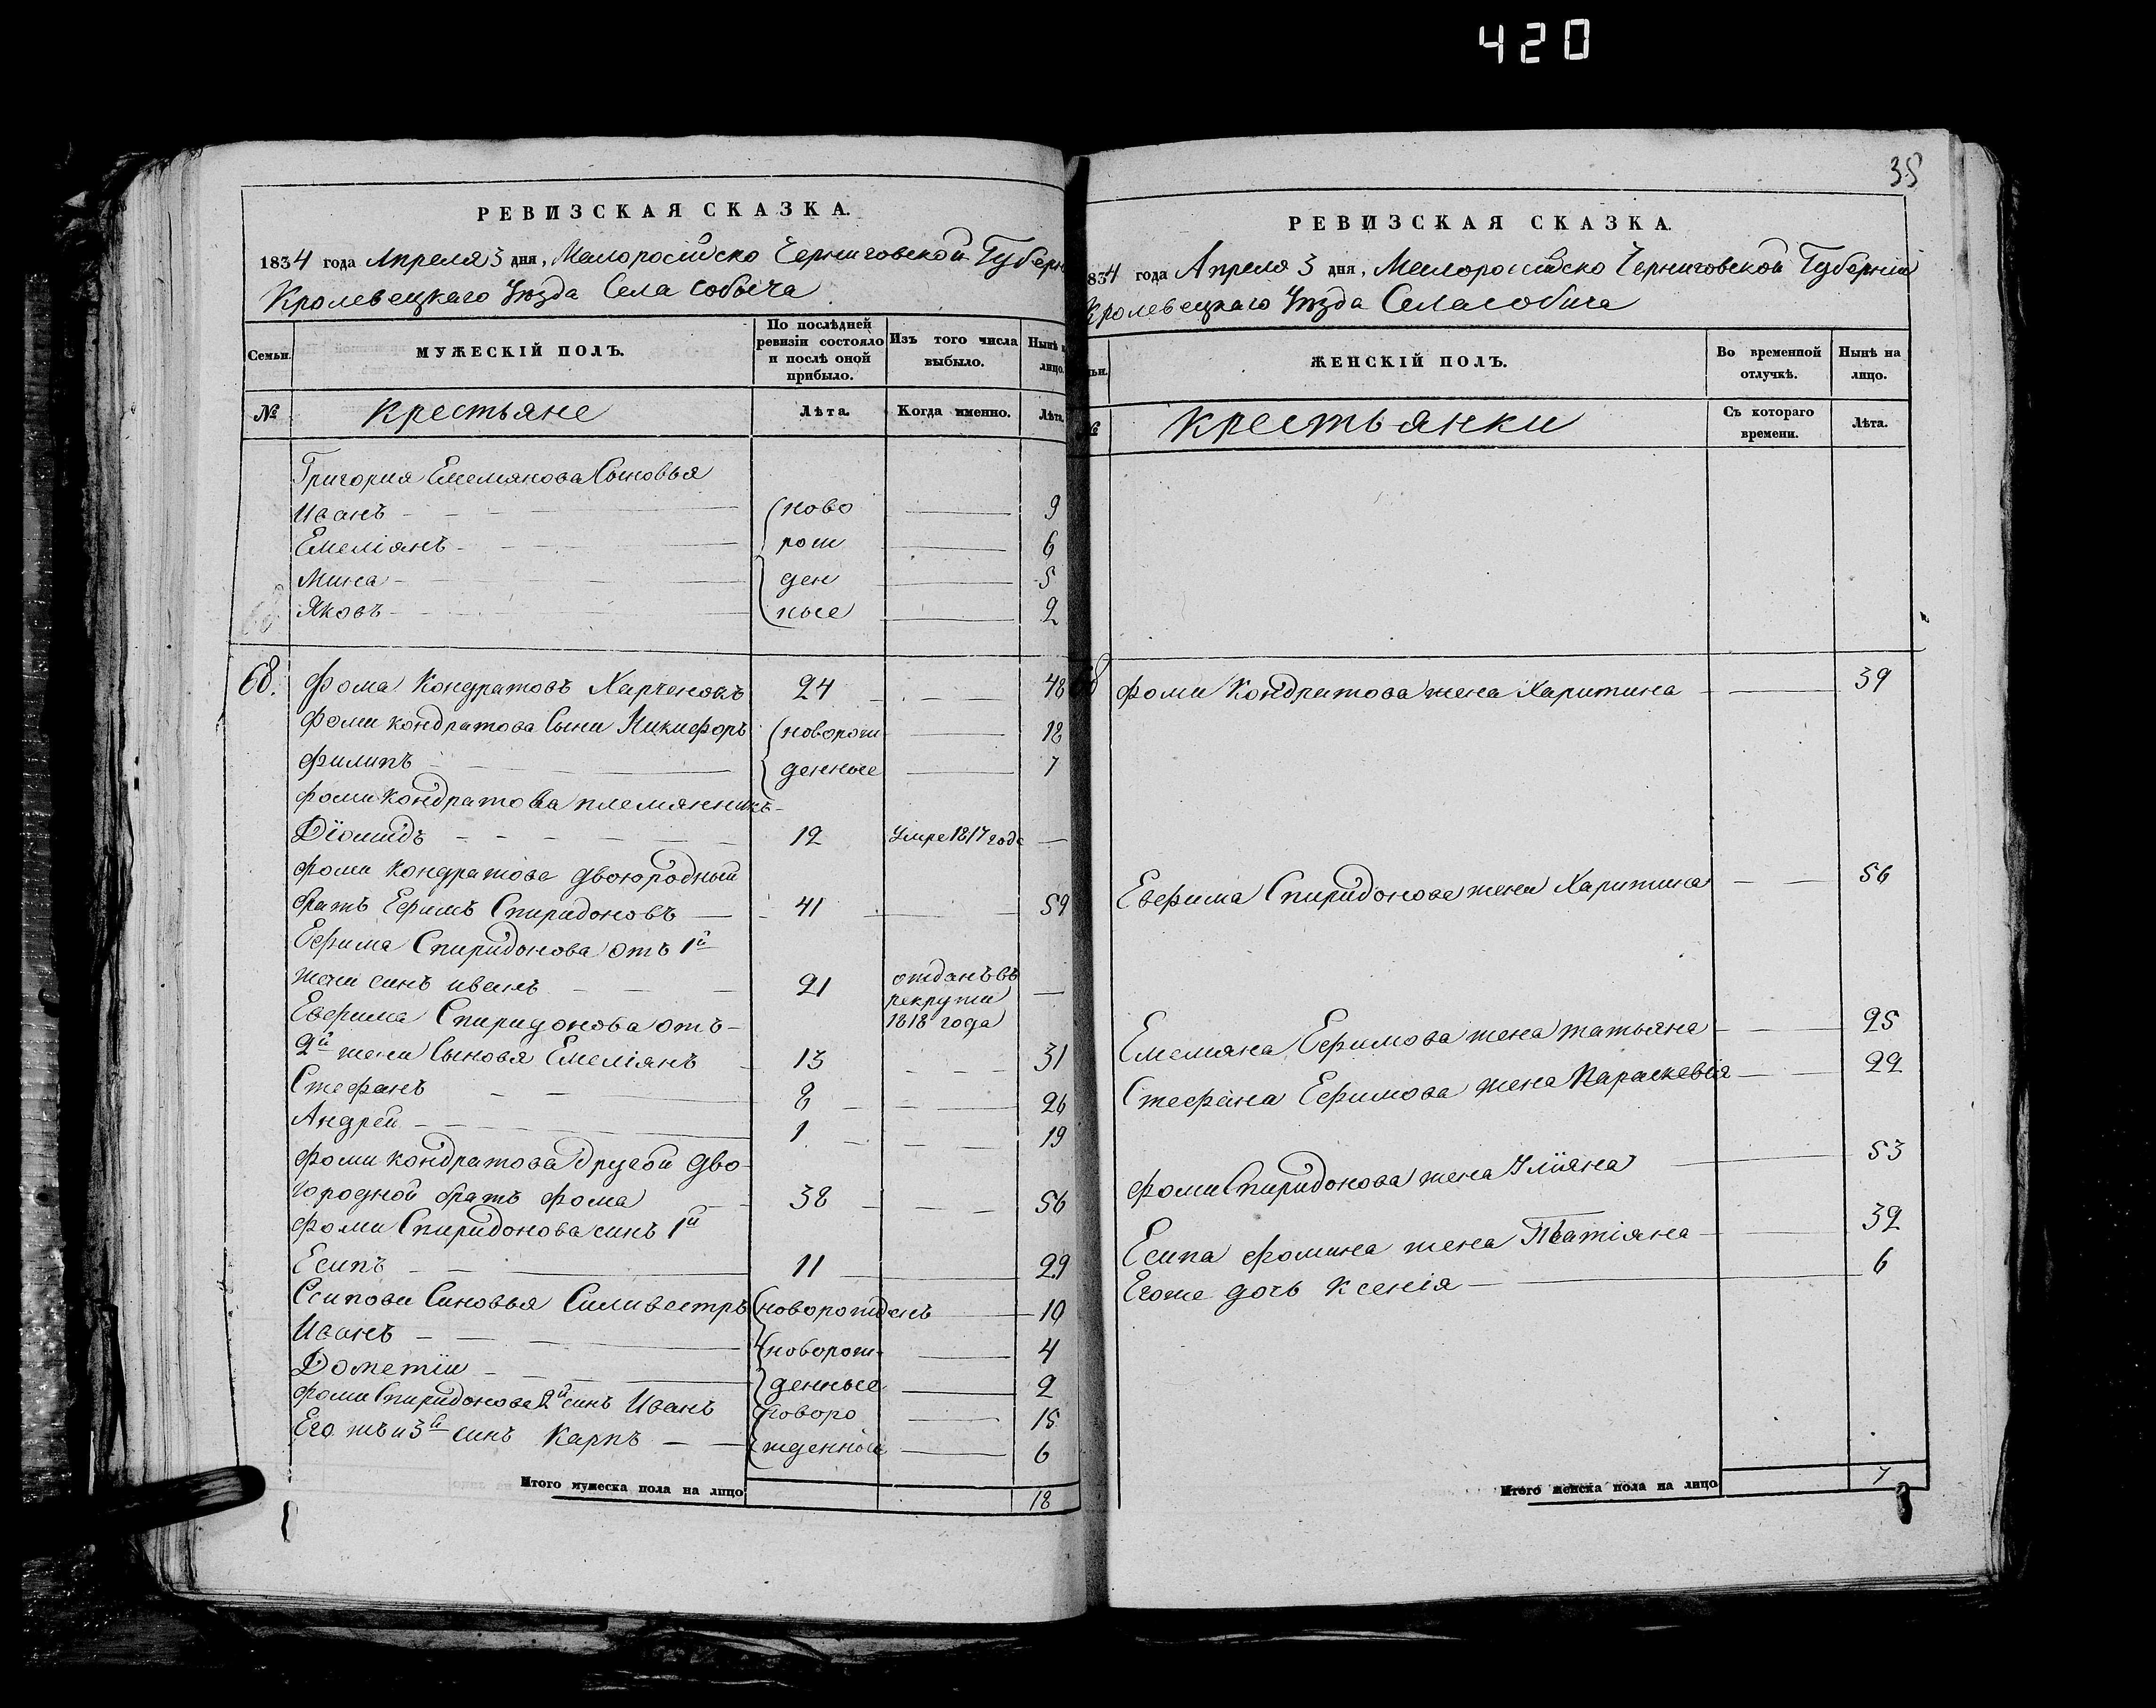 420
РЕВИЗСКАЯ СКАЗКА.
1834 года Апреля 3 дня, Малоросійско Черниговской Губерн
Кролевецкаго Уѣзда Села Собыча
Семьи.
МУЖЕСКІЙ ПОЛЪ.
По послѣдней ревизіи состояло и послѣ оной прибыло.
Изъ того числа выбыло.
Нынѣ н лицо.
№
Крестьяне
Лѣта.
Когда именно.
Лѣта.
Григория Емельянова Сыновья
Иванъ (ново 9
Емеліянъ рош 6
Мина ден 5
Яковъ ные 2
68. Фома Кондратовъ Харченокъ 24 48
Фоми Кондратова Сыни Никифоръ (новорож 18
Филипъ денные 7
Фоми Кондратова племянникъ
Діомидъ 12 Умре 1817 года
Фоми Кондратова двоюродный
братъ Ефимъ Спиридоновъ 41 59
Ефима Спиридонова отъ 1й
жени синъ иванъ 21 отданъ въ рекрути 1818 года
Евфима Спиридонова отъ
2й жени Сыновя Емеліянъ 13 31
Стефанъ 8 26
Андрей 1 19
Фоми Кондратова другой дво
юродной братъ Фома 38 56
Фоми Спиридонова синъ 1й
Есипъ 11 29
Есипови Синовья Силивестръ (новорожденъ 10
Иванъ (новорож 4
Дометіи денные 2
Фоми Спиридонова 2й синъ Иванъ новоро 15
Его жъ и 3й синъ Карпъ жденные 6
Итого мужеска пола на лицо 18
35
РЕВИЗСКАЯ СКАЗКА.
834 года Апреля 3 дня, Малоросійско Черниговской Губерніи
Кролевецкаго Уѣзда Села Собича
ьи.
ЖЕНСКІЙ ПОЛЪ.
Во временной отлучкѣ.
Нынѣ на лицо.
№
Крестьянки
Съ котораго времени.
Лѣта.
68 Фоми Кондратова жена Харитина 39
Евфима Спиридонова жена Харитина 56
Емеляна Ефимова жена татьяна 25
Стефана Ефимова жена Параскевія 22
Фоми Спиридонова жена Уліяна 53
Есипа Фомина жена Татіяна 32
Егоже дочь Ксенія 6
Итого женска пола на лицо 7